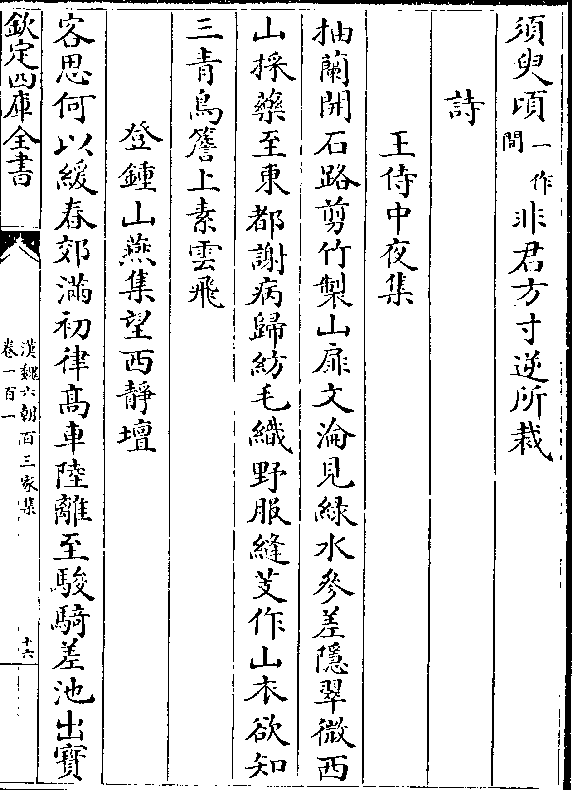 須臾頃一作間非君方寸逆所裁
詩
王侍中夜集
抽蘭開石路剪竹製山扉文淪見綠水參差隱翠微西
山採藥至東都謝病歸紡毛織野服縫芰作山衣欲知
三青鳥簷上素雲飛
登鍾山燕集望西靜壇
客思何以緩春郊滿初律高車陸離至駿騎差池出寶
欽定四庫全書
漢魏六朝百三家集
卷一百一
十六